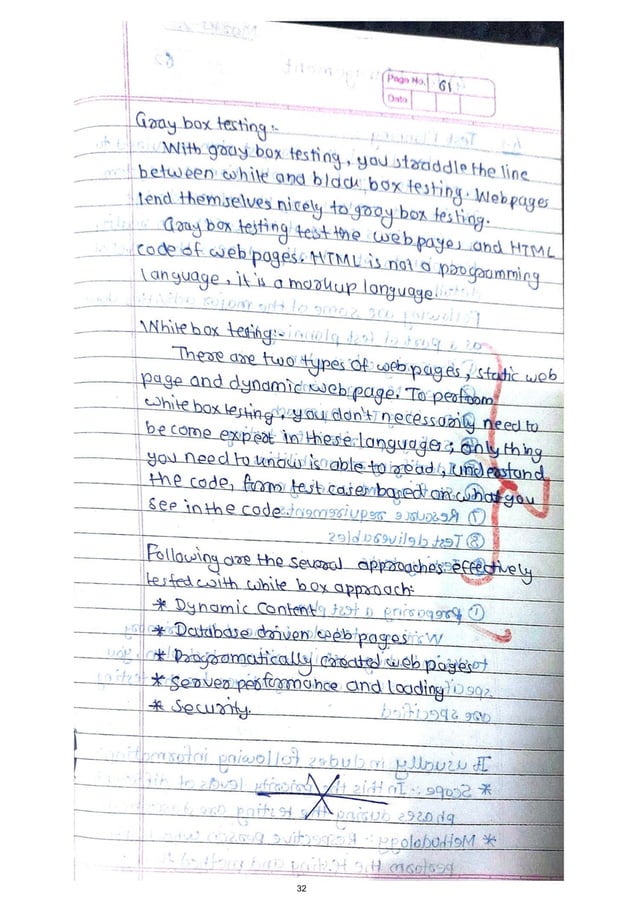 Page No. 61
Date
Gray box testing:-
With gray box testing, you straddle the line
between white and black box testing. Webpages
lend themselves nicely to gray box testing.
Gray box testing test the web pages and HTML
code of web pages. HTML is not a programming
language, it is a markup language
White box testing:-
There are two types of web pages, static web
page and dynamic web page. To perform
white box testing, you don't necessarily need to
become expert in these languages; only thing
you need to know is able to read, understand
the code, from test cases based on what you
see in the code.
Following are the several approaches effectively
tested with white box approach:
* Dynamic Content
* Database driven web pages
* Programatically created web pages
* Server performance and loading
* Security.
32